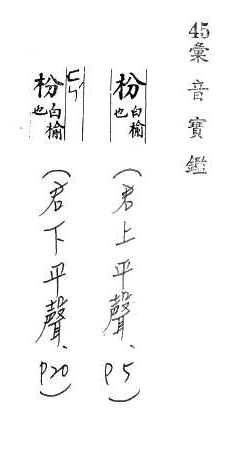 45彙音寶鑑
枌白榆也
(君上平聲、P5)
枌白榆也
(君下平聲、P20)